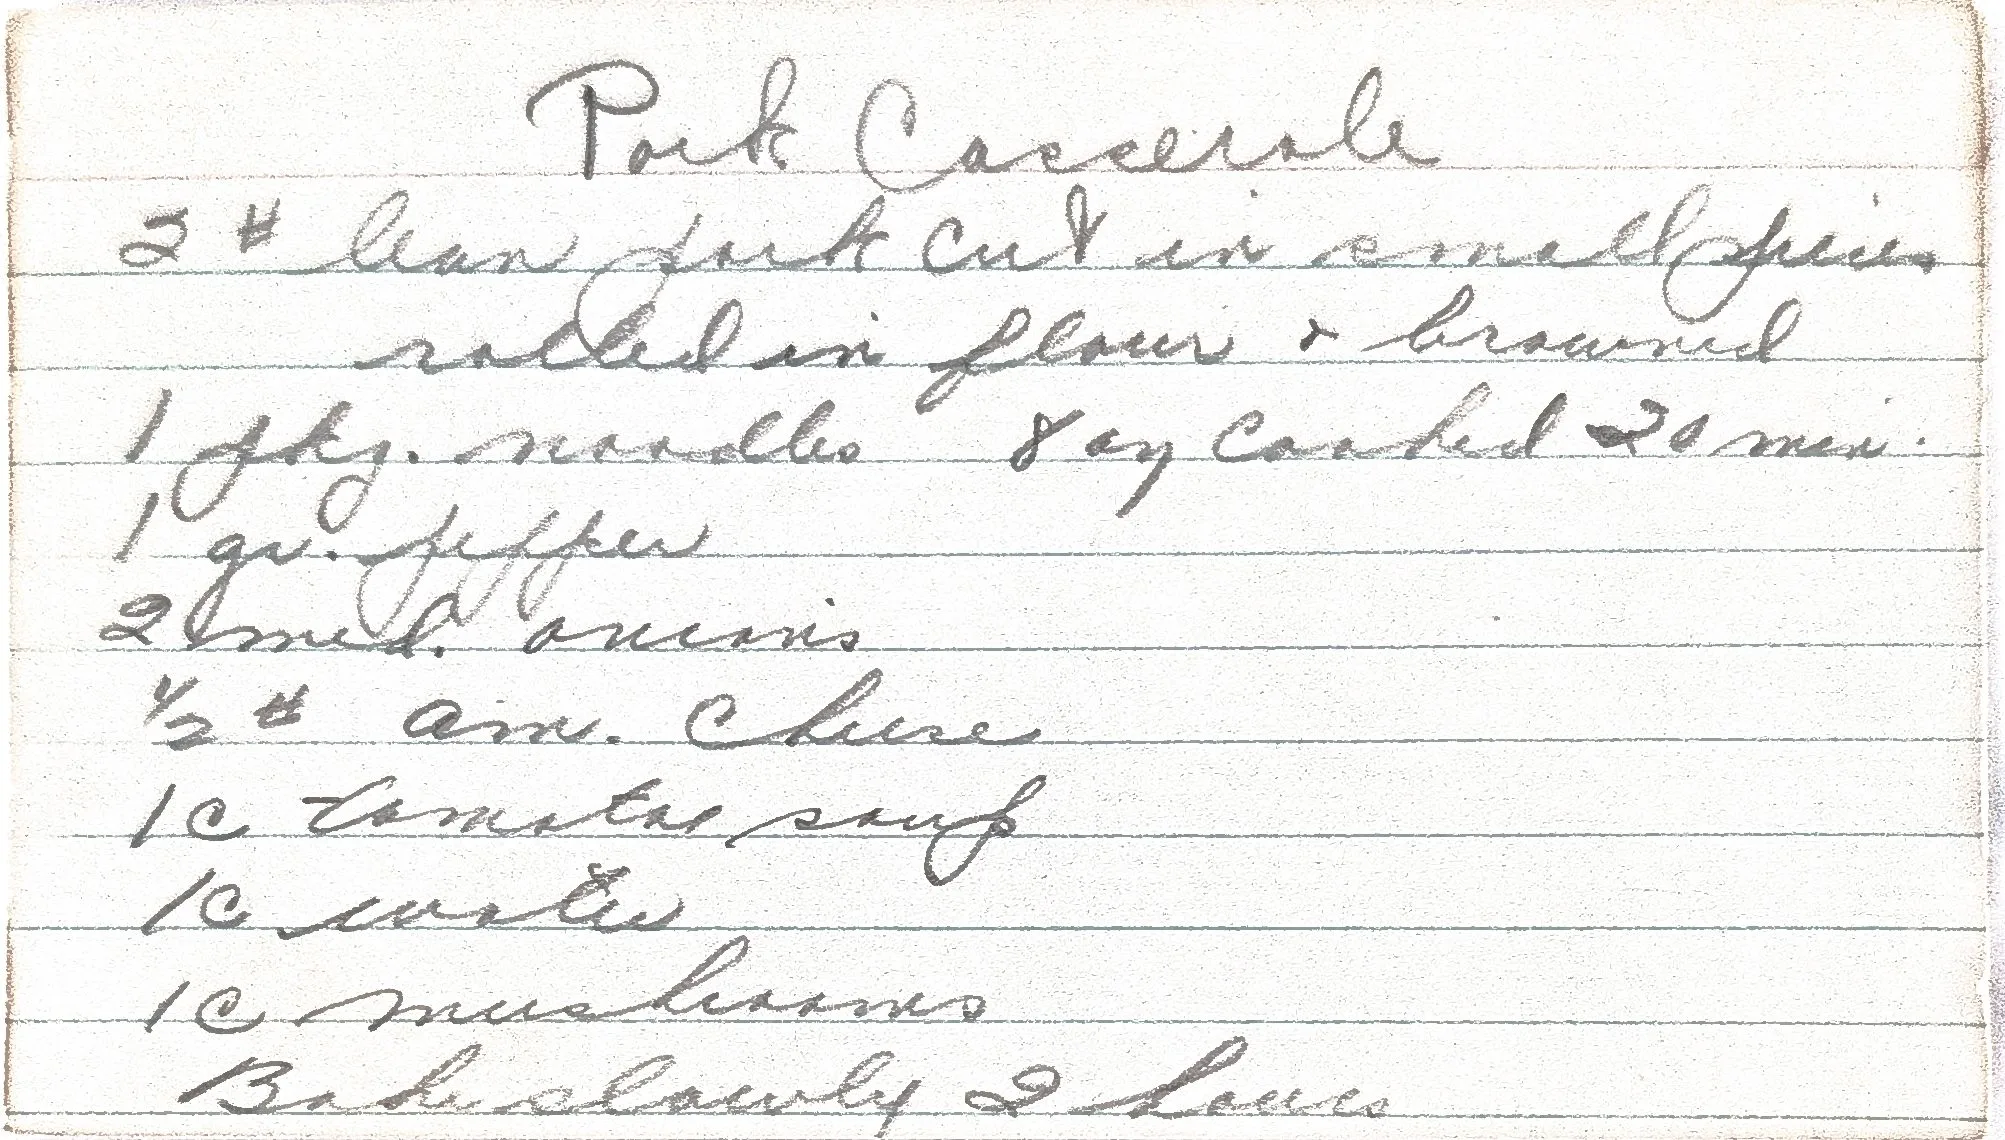 Pork Casserole
2 # lean pork cut in small pieces
rolled in flour & browned
1 pkg. noodles 8 oz cooked 20 min.
1 gr. pepper
2 med. onions
1/2 # am. cheese
1 c tomatoe soup
1 c water
1 c mushrooms
Bake slowly 2 hours